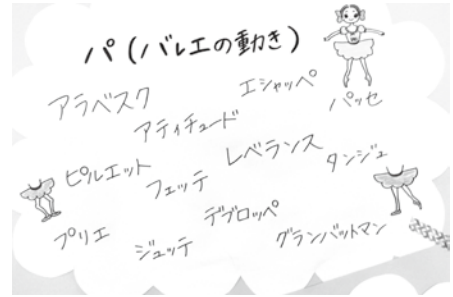 パ(バレエの動き)
エシャッペ
アラベスク
パッセ
アティチュード
レベランス
タンジュ
ピルエット
フェッテ
デブロッペ
プリエ
ジュッテ
グランバットマン